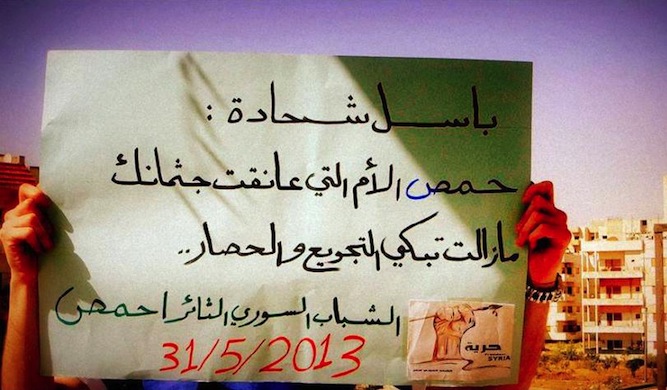 باسل شحادة :
حمص الأم التي عانقت جثمانك
مازالت تبكي التجويع والحصار..
الشباب السوري الثائر | حمص
31/5/2013
حرية
SYRIA